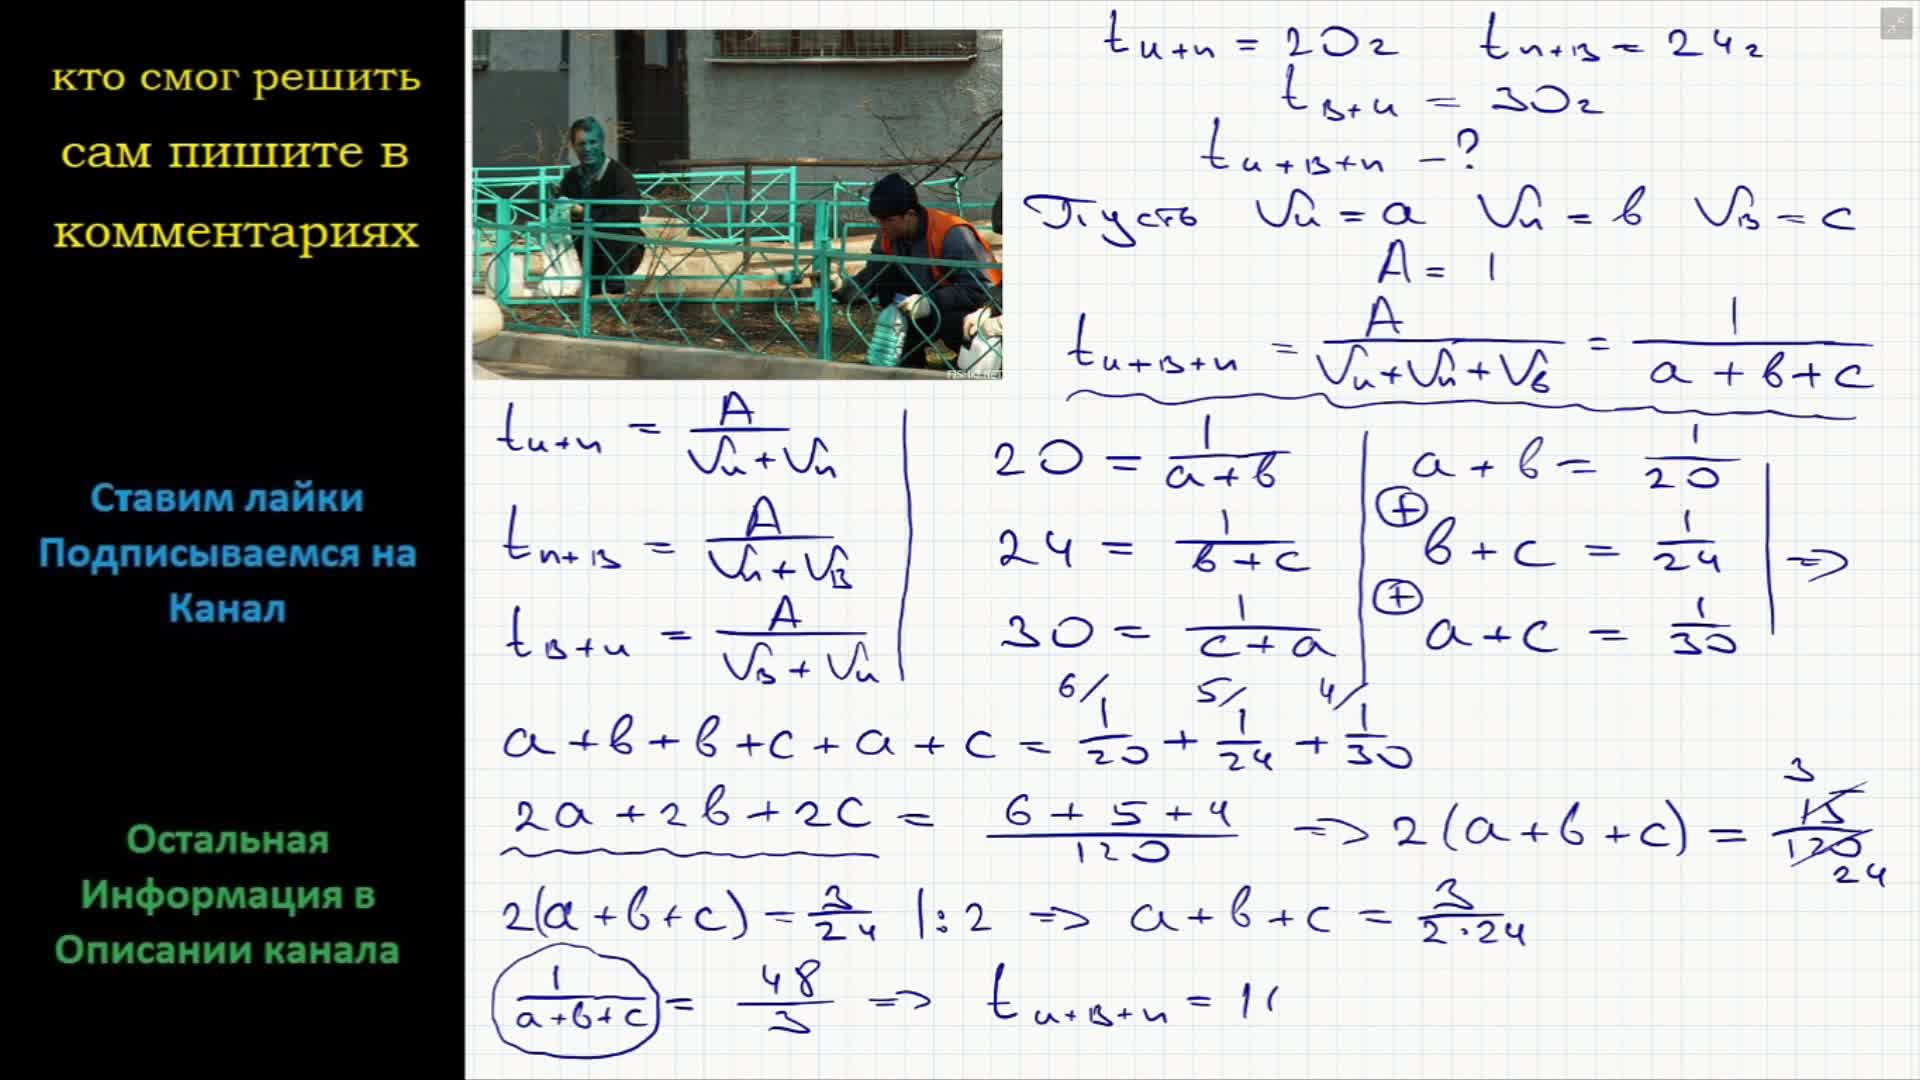 кто смог решить
сам пишите в
комментариях
Ставим лайки
Подписываемся на
Канал
Остальная
Информация в
Описании канала
t и+п = 20г t п+В = 24г
t В+и = 30г
t и+В+п - ?
Пусть Vи = a Vп = b VВ = c
A = 1
t и+В+п = A / (Vи+Vп+Vв) = 1 / (a+b+c)
t и+п = A / (Vи+Vп)
t п+В = A / (Vп+VВ)
t В+и = A / (VВ+Vи)
20 = 1 / (a+b)
24 = 1 / (b+c)
30 = 1 / (c+a)
a+b = 1/20
⊕
b+c = 1/24 =>
⊕
a+c = 1/30
6/ 5/ 4/
a+b+b+c+a+c = 1/20 + 1/24 + 1/30
2a+2b+2c = (6+5+4) / 120 => 2(a+b+c) = 15/120 3 24
2(a+b+c) = 3/24 |:2 => a+b+c = 3 / (2·24)
1 / (a+b+c) = 48/3 => t и+В+п = 1